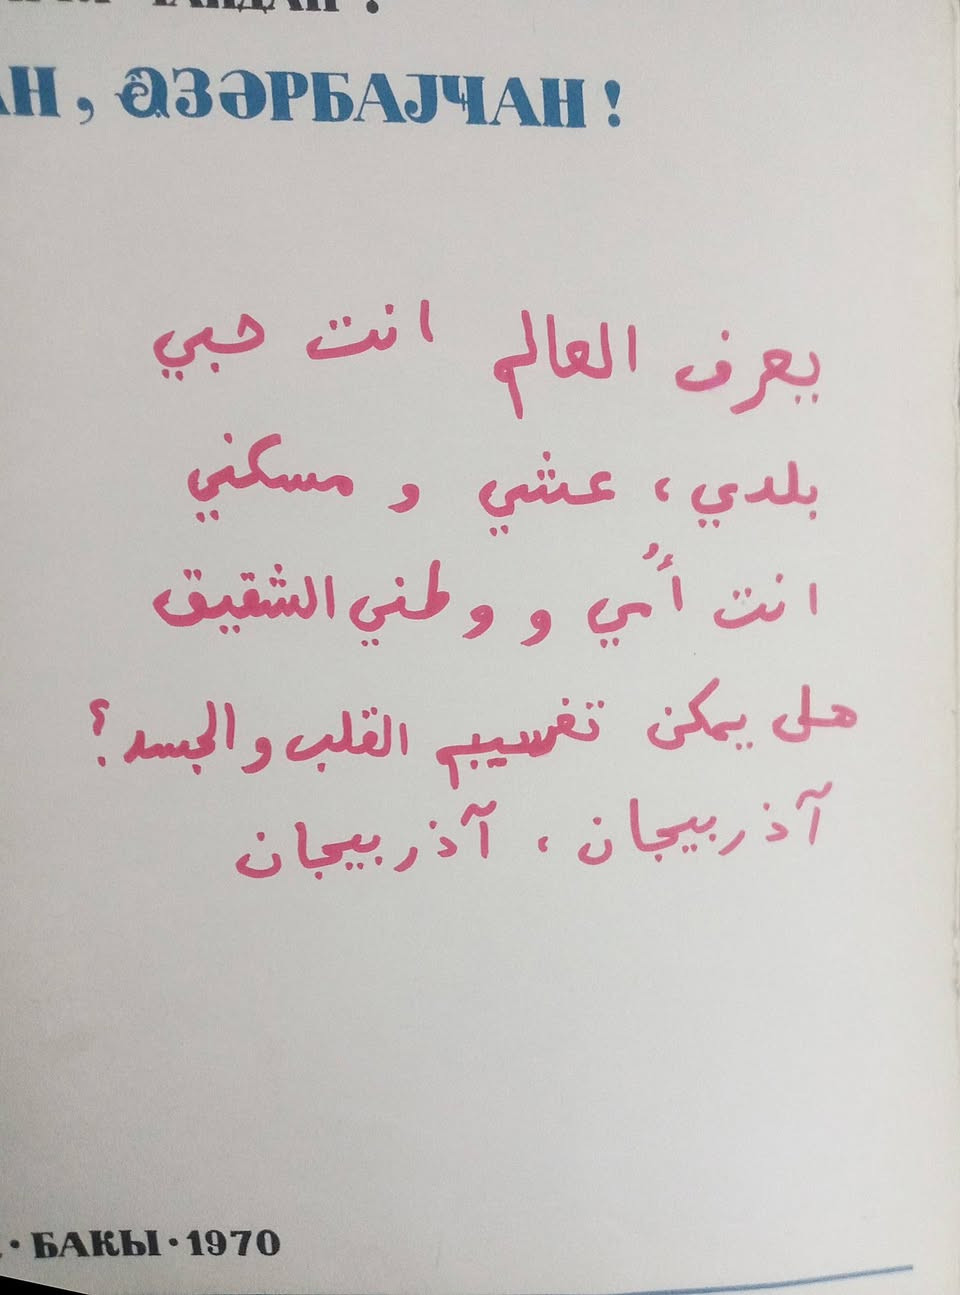 АН, ӘЗӘРБАЈҸАН!
يعرف العالم انت حبي
بلدي، عشي و مسكني
انت أُمي و وطني الشقيق
هل يمكن تقسيم القلب والجسد؟
آذربيجان، آذربيجان
· БАКЫ · 1970